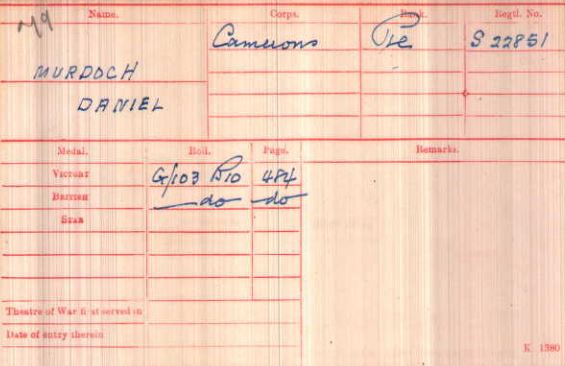 M9
Name. Corps. Rank. Regtl. No.
Camerons Pte S 22851
MURDOCH
DANIEL
Medal. Roll. Page. Remarks.
VICTORY G/103 B10 484
BRITISH do do
STAR
Theatre of War first served in
Date of entry therein
K 1380